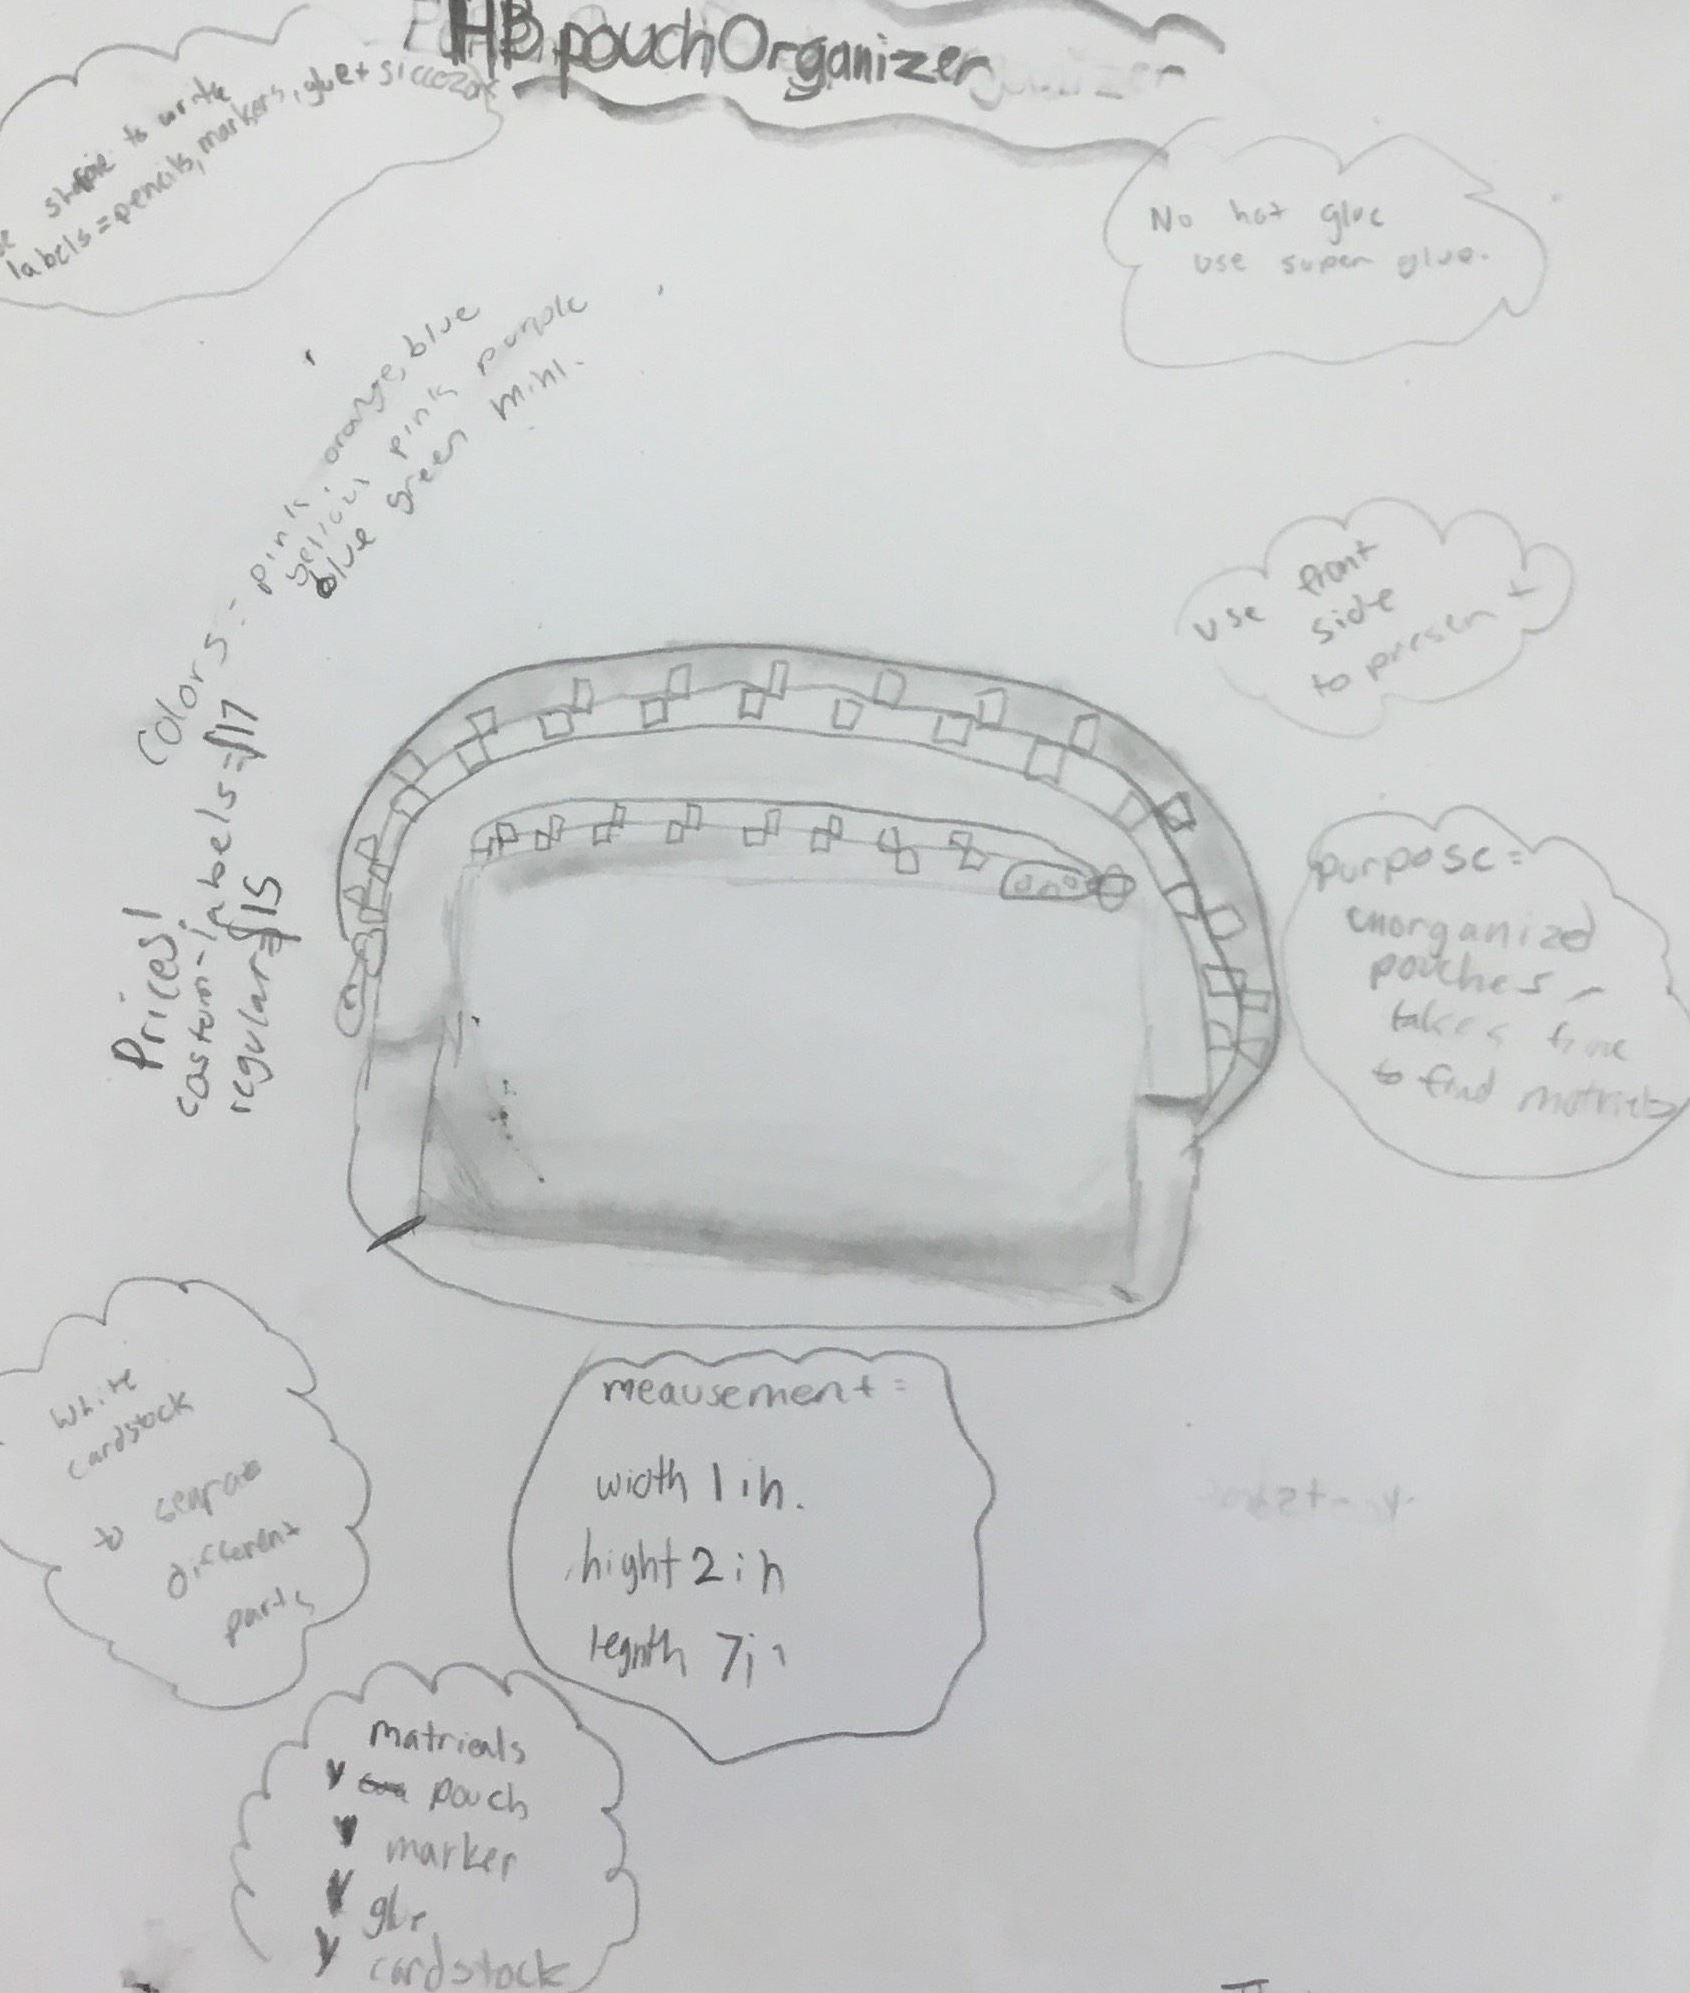 HB pouch Organizer
sharpie to write
labels = pencils, markers, glue + siccozors
No hot glue
use super glue.
Colors = pink, orange, blue
pink purple
blue green mini.
use front
side
to present
Prices!
custom-labels = $17
regular = $15
purpose =
unorganized
pouches -
takes time
to find matriels
white
cardstock
to seprate
different
parts
meausement =
width 1 in.
hight 2 in
legnth 7in
matrieals
pouch
marker
cardstock